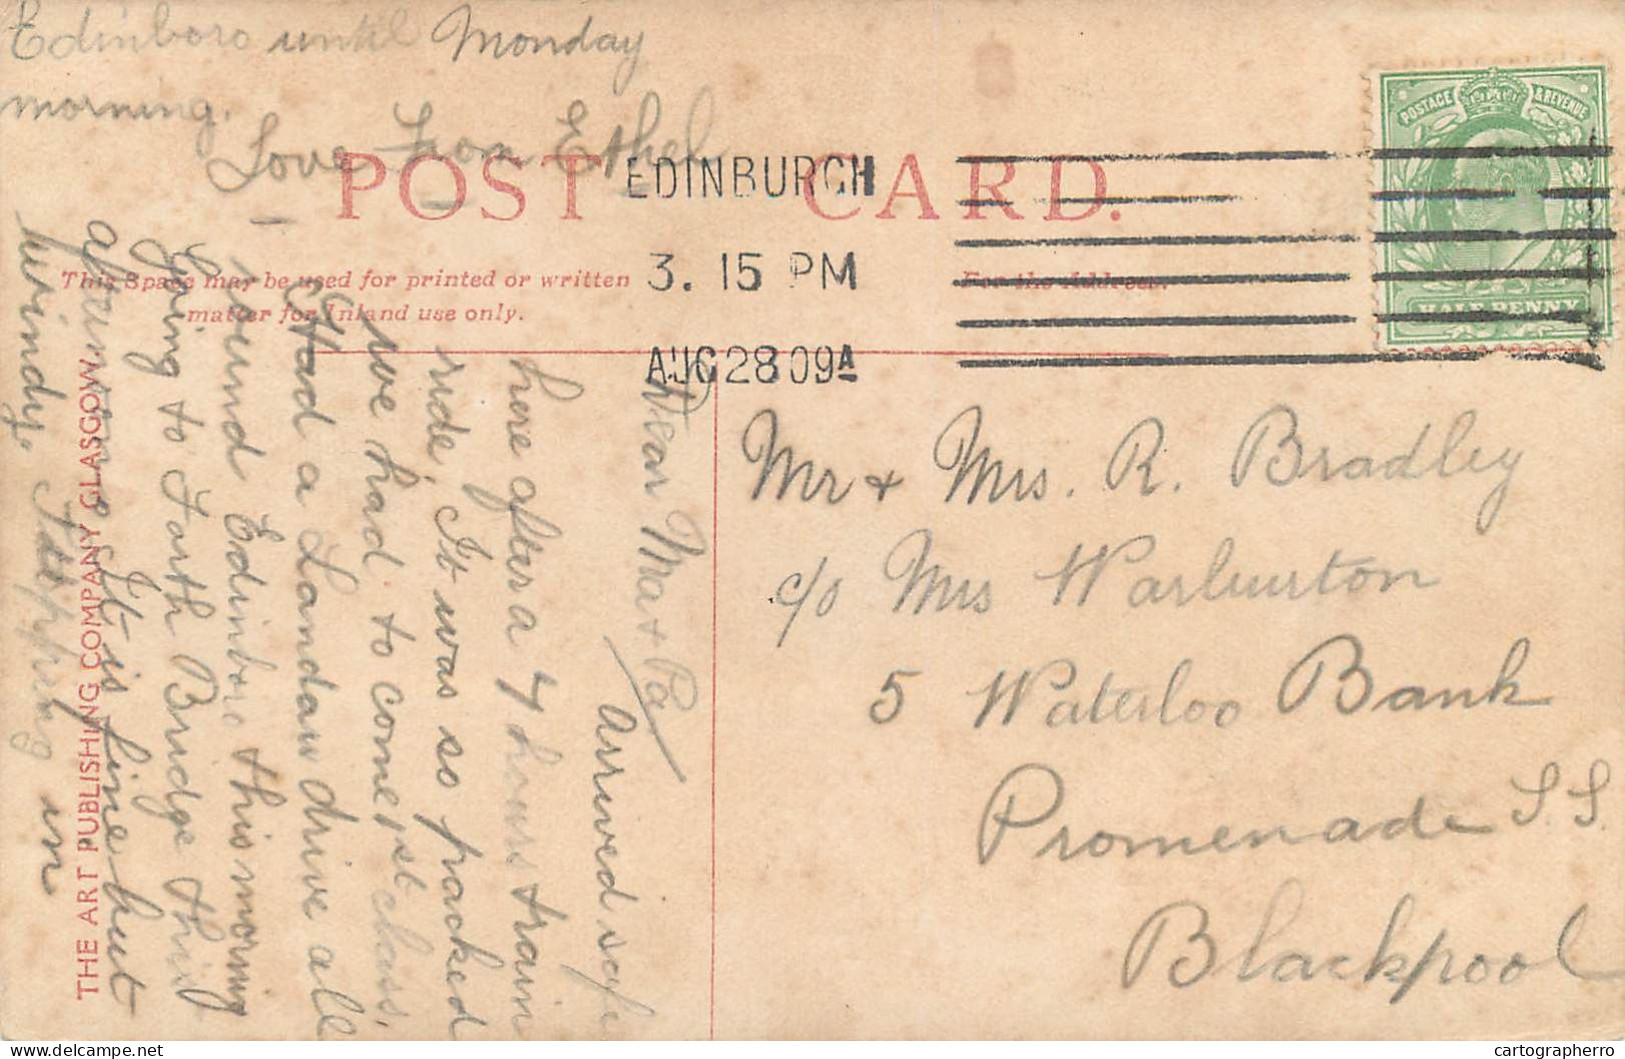 POST CARD.
This Space may be used for printed or written
matter for Inland use only.
For the Address.
EDINBURGH
3. 15 PM
AUG 28 09A
POSTAGE & REVENUE
HALF PENNY
THE ART PUBLISHING COMPANY GLASGOW.
Dear Ma & Pa
Arrived safe
here after a 7 hours train
ride. It was so packed
we had to come 1st class.
Had a Landau drive all
round Edinboro this morning
Going to Forth Bridge this
afternoon. It is fine but
windy. Stopping in
Edinboro until Monday
morning.
Love from Ethel
Mr & Mrs. R. Bradley
c/o Mrs Warburton
5 Waterloo Bank
Promenade S.S.
Blackpool
cartographerro